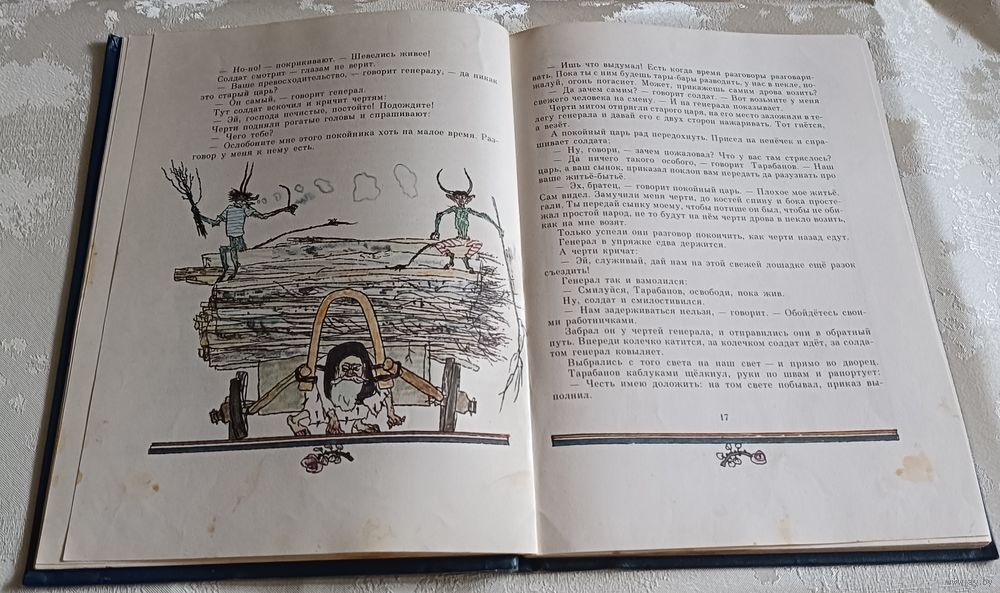 — Но-но! — покрикивают. — Шевелись живее!
Солдат смотрит — глазам не верит.
— Ваше превосходительство, — говорит генералу, — да никак
это старый царь?
— Он самый, — говорит генерал.
Тут солдат вскочил и кричит чертям:
— Эй, господа нечистые, постойте! Подождите!
Черти подняли рогатые головы и спрашивают:
— Чего тебе?
— Ослобоните мне этого покойника хоть на малое время. Раз-
говор у меня к нему есть.
— Ишь что выдумал! Есть когда время разговоры разговари-
вать. Пока ты с ним будешь тары-бары разводить, у нас в пекле, по-
жалуй, огонь погаснет. Может, прикажешь самим дрова возить?
— Да зачем самим? — говорит солдат. — Вот возьмите у меня
свежего человека на смену. — И на генерала показывает.
Черти мигом отпрягли старого царя, на его место заложили в те-
легу генерала и давай его с двух сторон нажаривать. Тот гнётся,
а везёт.
А покойный царь рад передохнуть. Присел на пенёчек и спра-
шивает солдата:
— Ну, говори, — зачем пожаловал? Что у вас там стряслось?
— Да ничего такого особого, — говорит Тарабанов. — Наш
царь, а ваш сынок, приказал поклон вам передать да разузнать про
ваше житьё-бытьё.
— Эх, братец, — говорит покойный царь. — Плохое моё житьё.
Сам видел. Замучили меня черти, до костей спину и бока простё-
гали. Ты передай сынку моему, чтобы потише он был, чтобы не оби-
жал простой народ, не то будут на нём черти дрова в пекло возить,
как на мне возят.
Только успели они разговор покончить, как черти назад едут.
Генерал в упряжке едва держится.
А черти кричат:
— Эй, служивый, дай нам на этой свежей лошадке ещё разок
съездить!
Генерал так и взмолился:
— Смилуйся, Тарабанов, освободи, пока жив.
Ну, солдат и смилостивился.
— Нам задерживаться нельзя, — говорит. — Обойдётесь свои-
ми работничками.
Забрал он у чертей генерала, и отправились они в обратный
путь. Впереди колечко катится, за колечком солдат идёт, за солда-
том генерал ковыляет.
Выбрались с того света на наш свет — и прямо во дворец.
Тарабанов каблуками щёлкнул, руки по швам и рапортует:
— Честь имею доложить: на том свете побывал, приказ вы-
полнил.
17